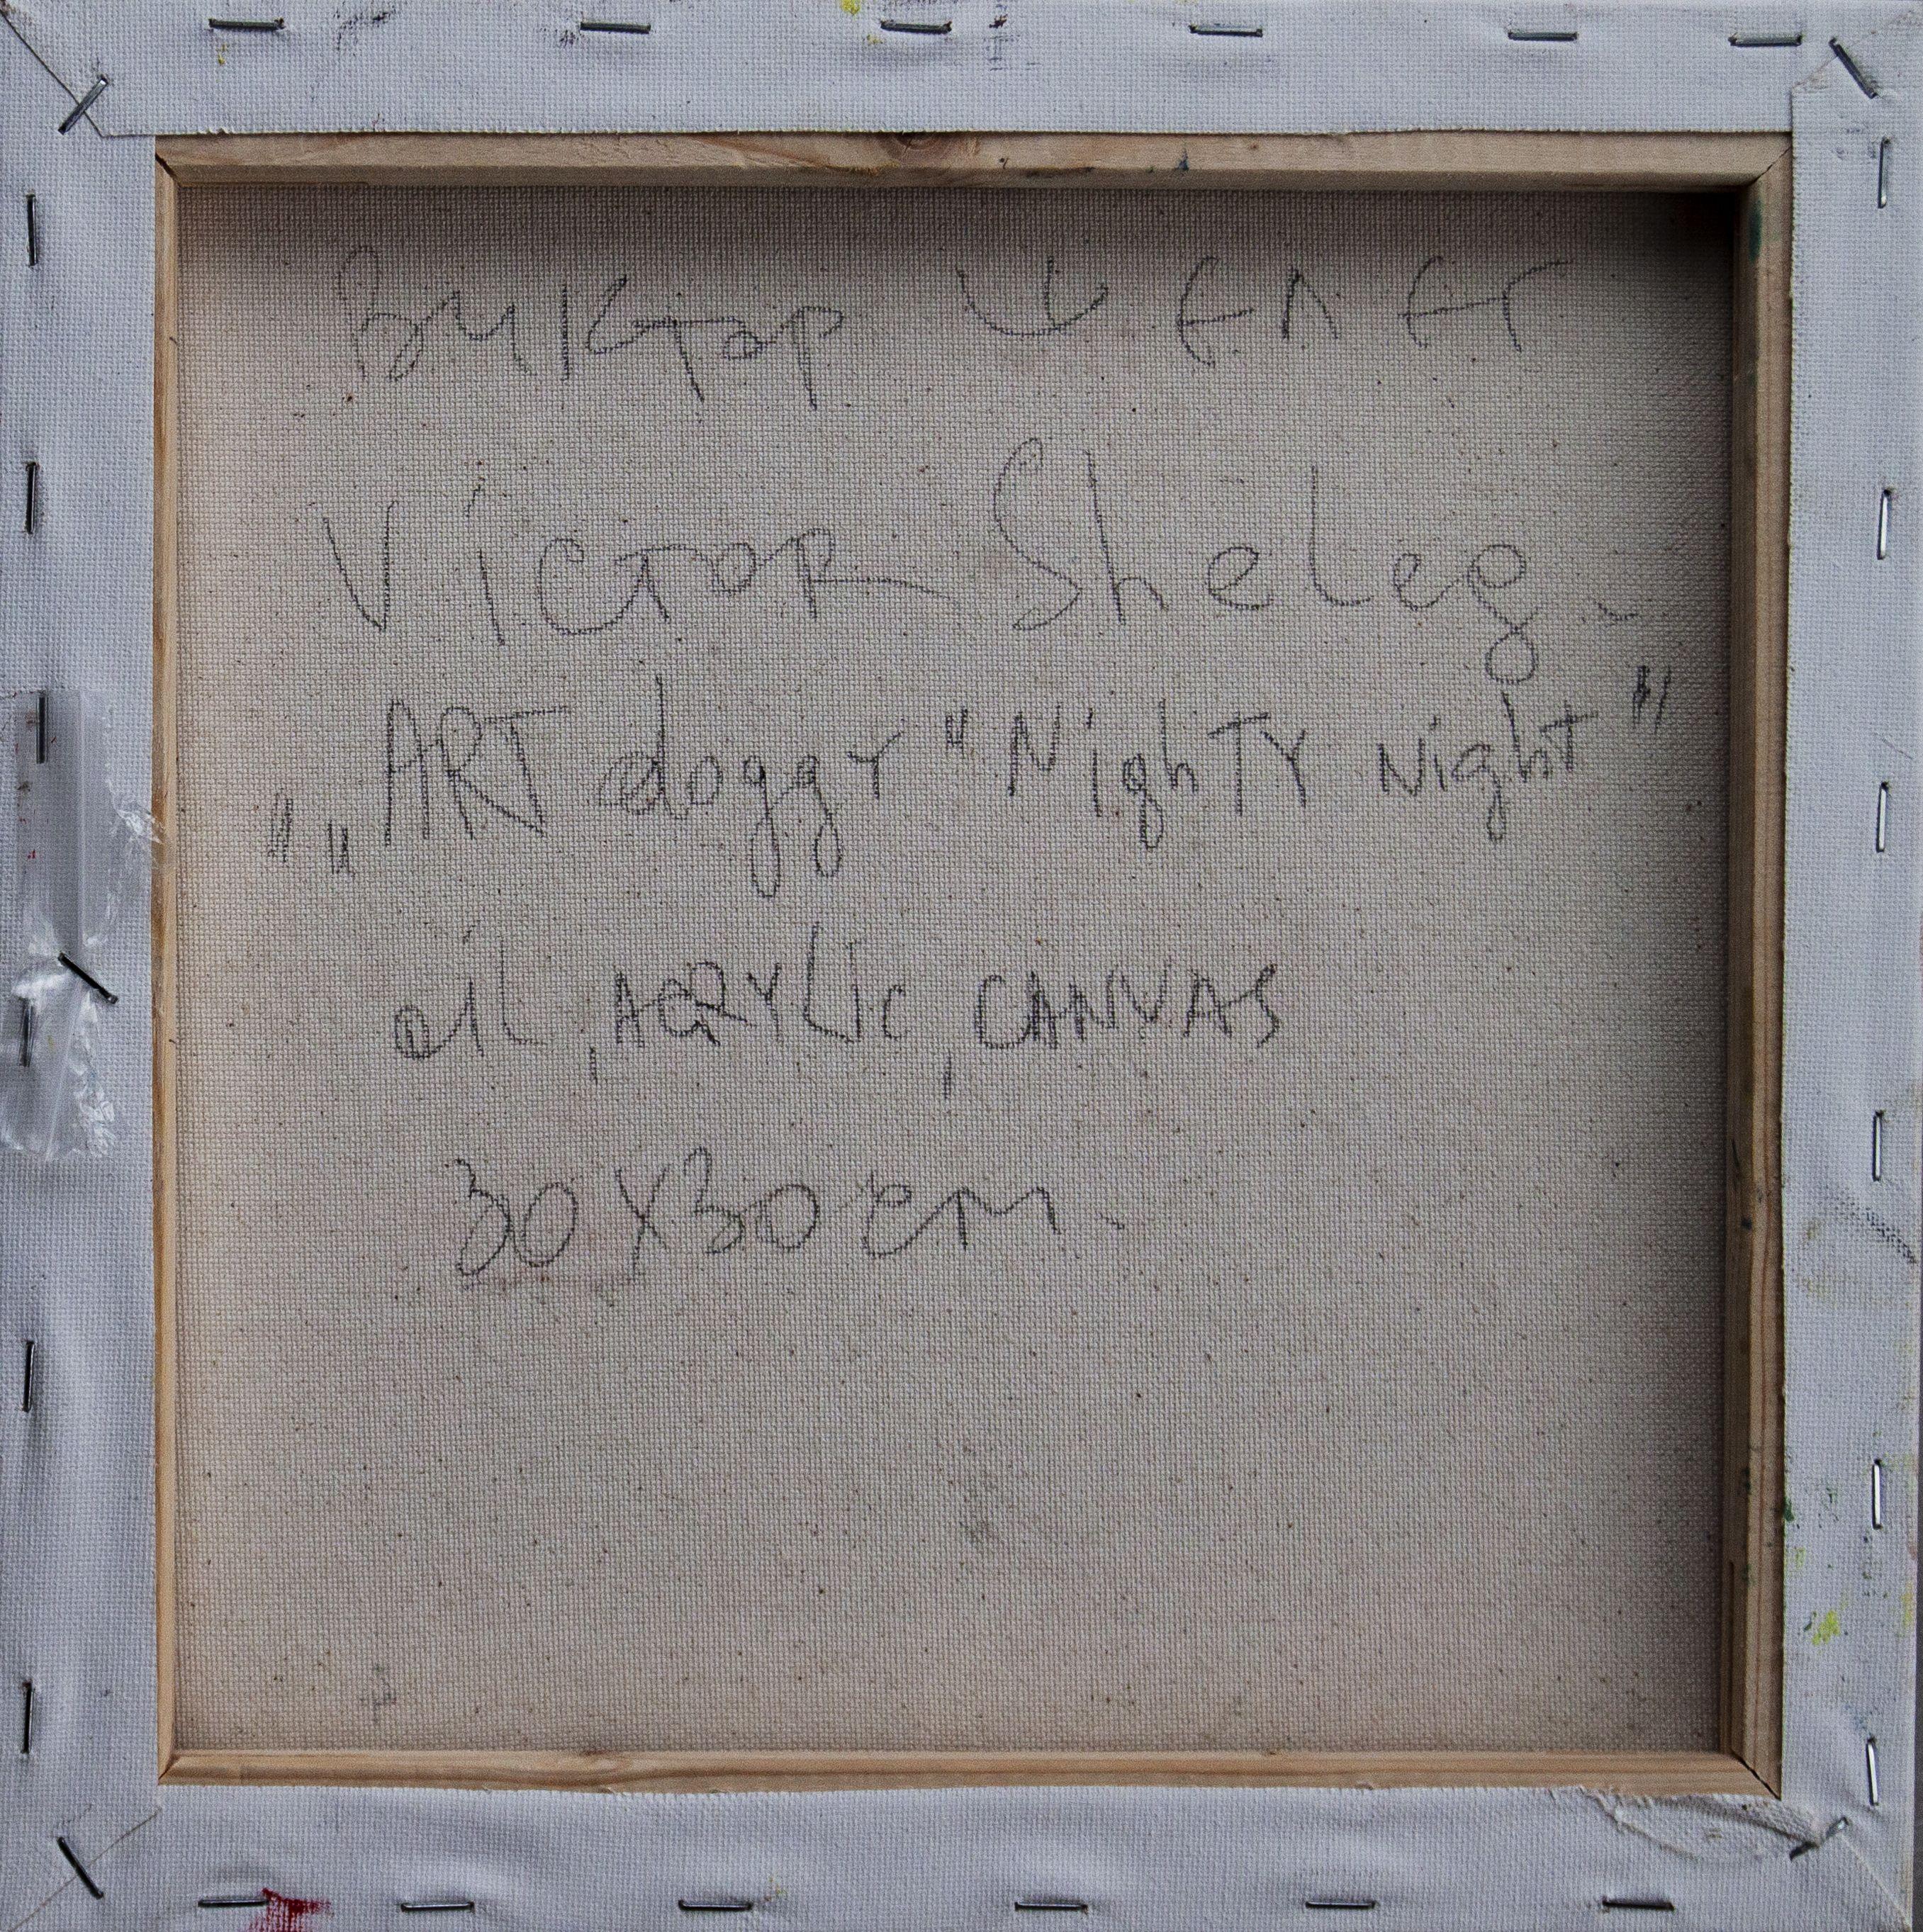 Виктор ШЕЛЕГ
Victor Sheleg.
" „ART doggy "Nighty Night"
oil, ACRYLIC, CANVAS
30x30 cm.